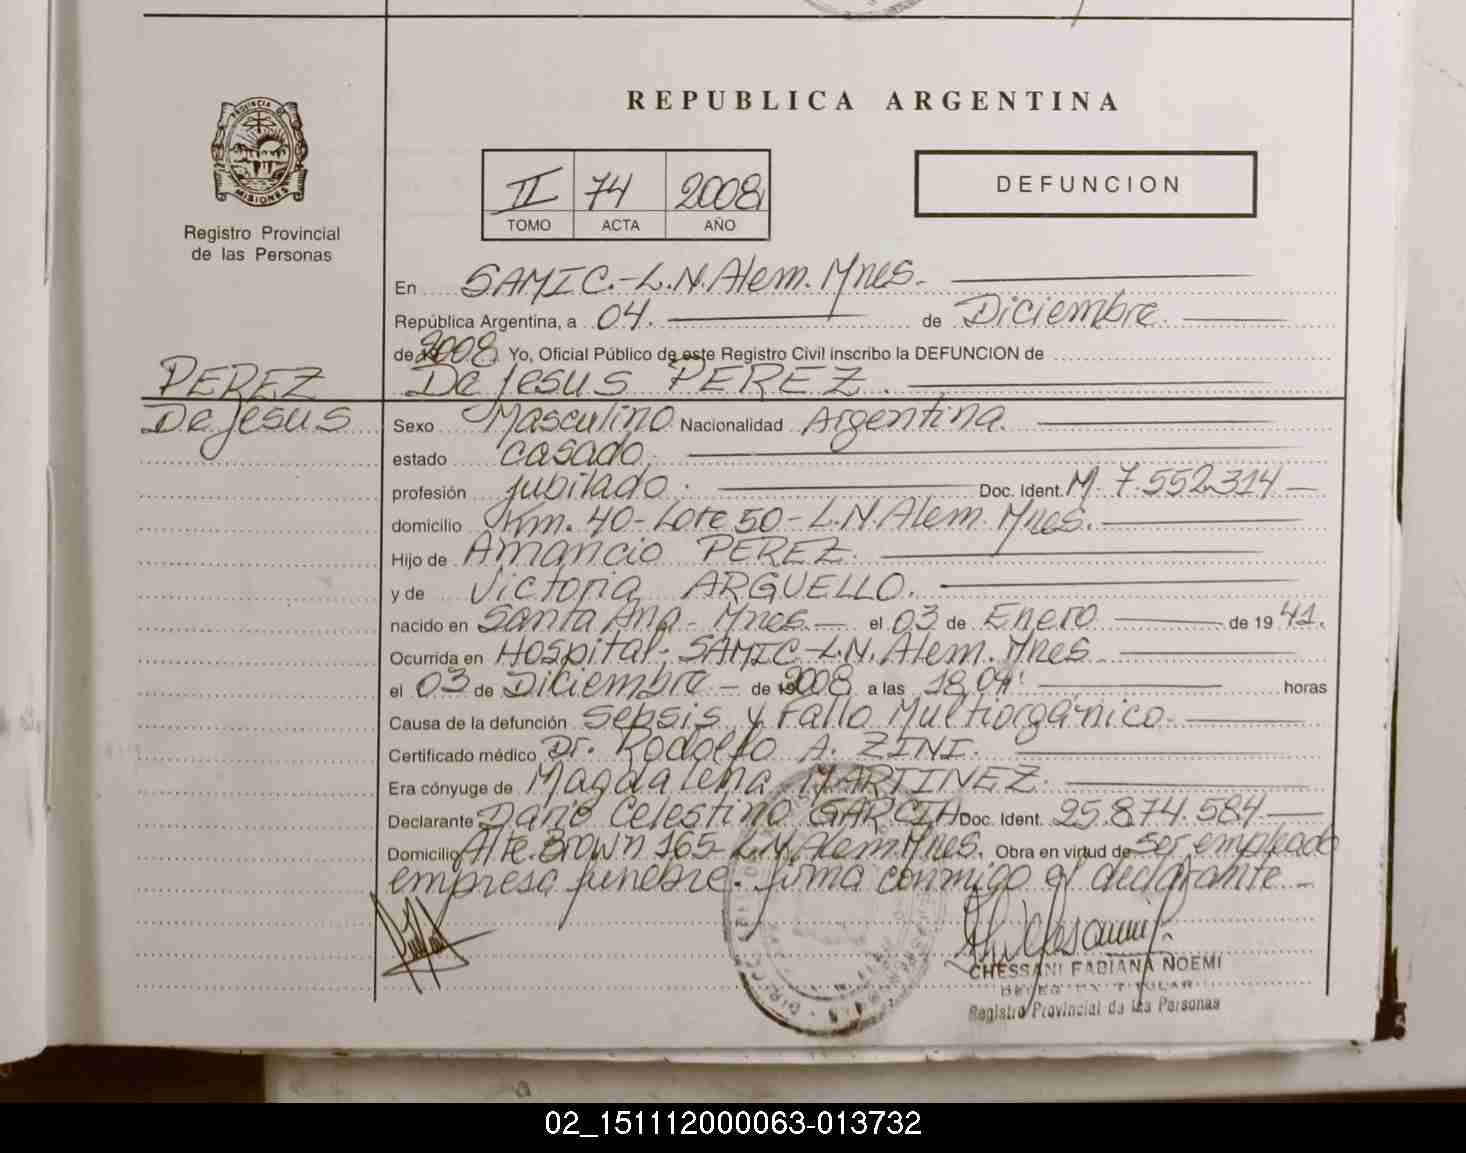 REPUBLICA ARGENTINA
PROVINCIA DE
MISIONES
Registro Provincial
de las Personas
II 74 2008
TOMO ACTA AÑO
DEFUNCION
En SAMIC.-L.N.Alem.Mnes.
República Argentina, a 04. de Diciembre.
de 2008. Yo, Oficial Público de este Registro Civil inscribo la DEFUNCION de
PEREZ De Jesus PEREZ.
De Jesus Sexo Masculino Nacionalidad Argentina.
estado casado.
profesión jubilado. Doc. Ident. M. 7.552.314
domicilio Km. 40-Lote 50-L.N.Alem. Mnes.
Hijo de Amancio PEREZ.
y de Victoria ARGUELLO.
nacido en Santa Ana-Mnes. el 03 de Enero de 19 41.
Ocurrida en Hospital-SAMIC-L.N.Alem.Mnes
el 03 de Diciembre de 2008 a las 18,04' horas
Causa de la defunción Sepsis y Fallo Multiorgánico.
Certificado médico Dr. Rodolfo A. ZINI.
Era cónyuge de Magdalena MARTINEZ.
Declarante Dario Celestino GARCIA Doc. Ident. 25.874.584.
Domicilio Alte. Brown 165-L.N.Alem.Mnes. Obra en virtud de ser empleado
empresa funebre. firma conmigo el declarante.
CHESSANI FABIANA NOEMI
TITULAR
Registro Provincial de las Personas
02_151112000063-013732